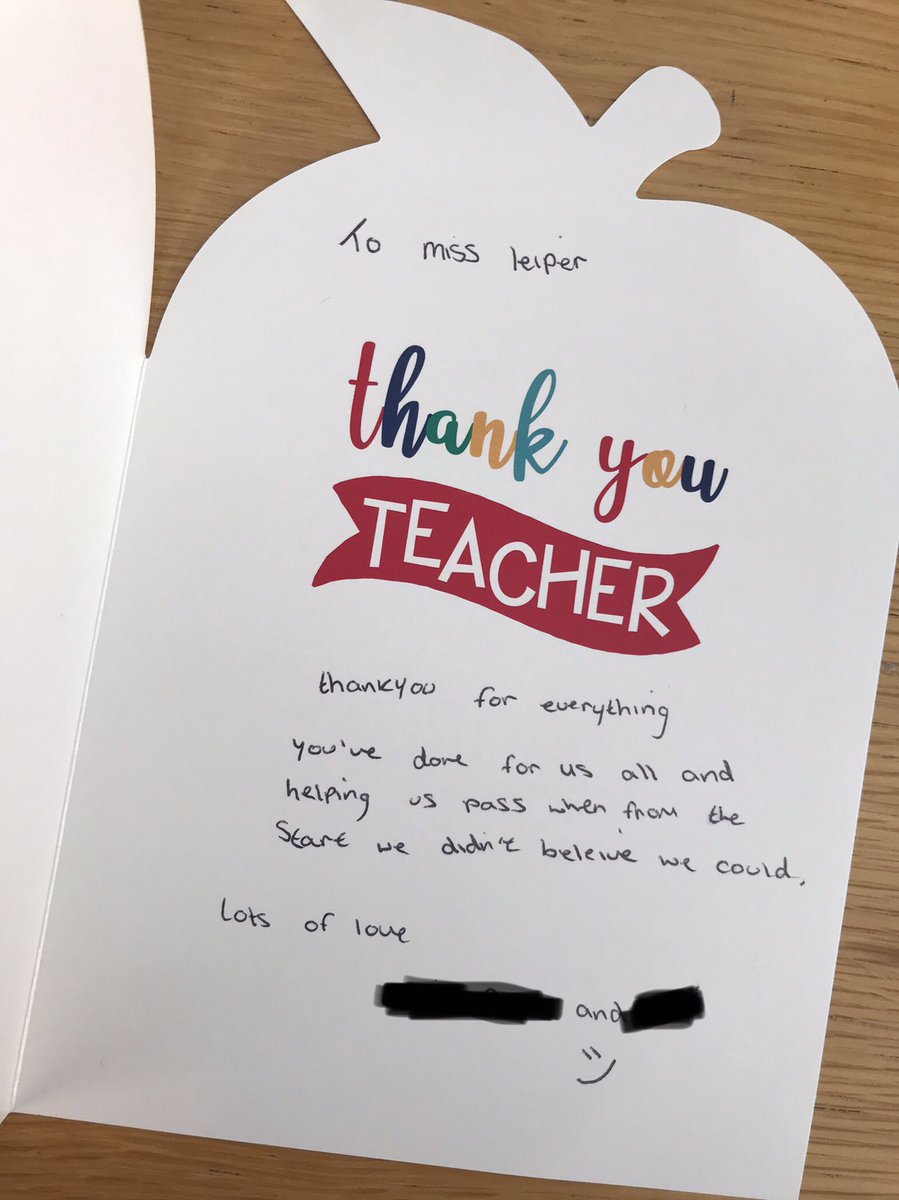 To miss leiper
thank you
TEACHER
thankyou for everything
you've done for us all and
helping us pass when from the
Start we didn't beleive we could.
Lots of love
and